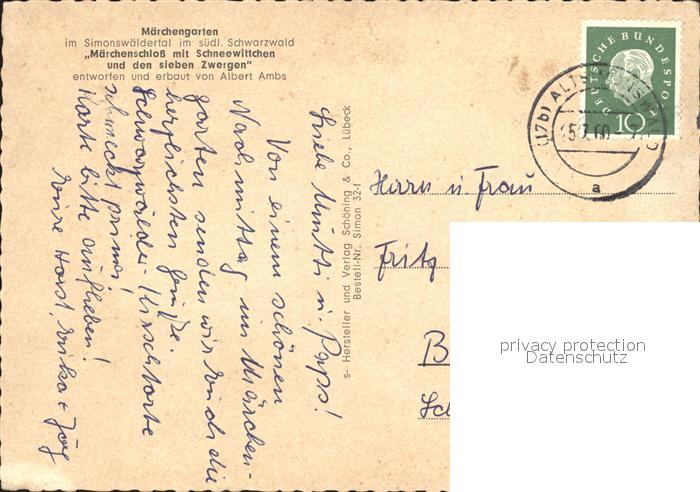 Märchengarten
im Simonswäldertal im südl. Schwarzwald
„Märchenschloß mit Schneewittchen
und den sieben Zwergen"
entworfen und erbaut von Albert Ambs
DEUTSCHE BUNDESPOST
10
(17b) ALTSIMONSWALD
15.7.60
a
Liebe Mutti u. Paps!
Von einem schönen
Nachmittag im Märchen-
garten senden wir Euch die
herzlichsten Grüße.
Schwarzwälder-Kirschtorte
schmeckt prima!
Karte bitte aufheben!
Eure Horst, Erika + Jörg
s- Hersteller und Verlag Schöning & Co., Lübeck
Bestell-Nr. Simon 32-f
Herrn u. Frau
Fritz
B
Sch
privacy protection
Datenschutz